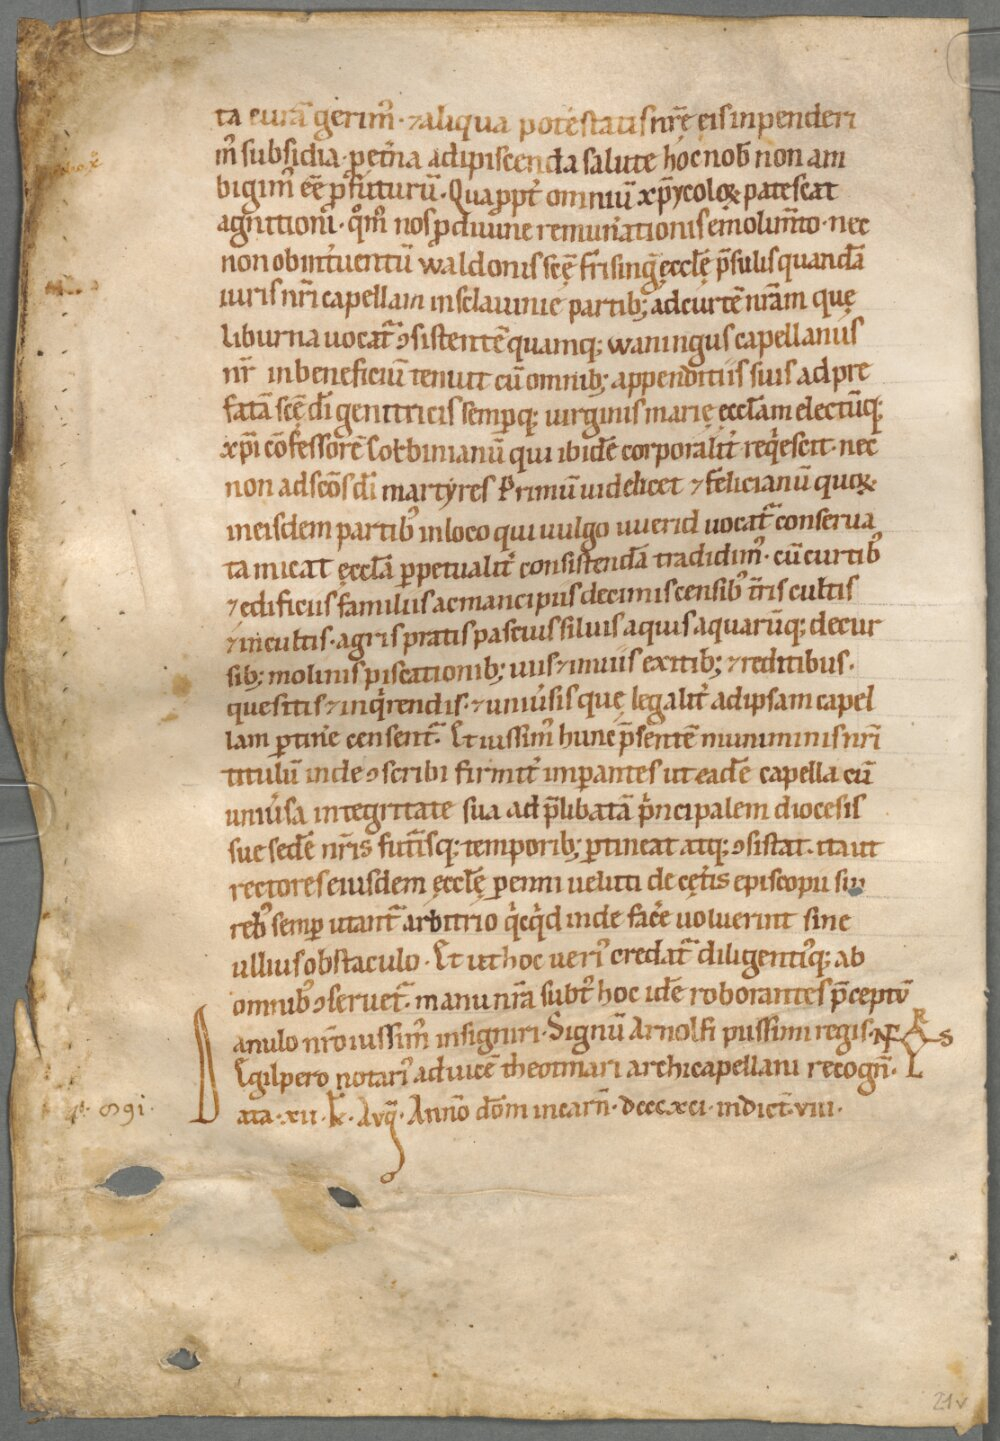 ta curā gerim᷒ · ⁊ aliqua potestatis nr̄ę eis inpenderi
m᷒ subsidia · pet̄na adipiscenda salute hoc nob̄ non am
bigim᷒ eē ꝓfuturū · Quapropt̄ omniū xp̄ycoloꝝ patescat
agnitioni · qm̄ nos ꝓ diuine remunationis emolum̄to · nec
non ob int̄uentū waldonis scę̄ frīsinḡ ęcclę̄ p̄sulis quandā
iuris nr̄i capellam in sclauinie partib; ad curtē nr̄am quę
liburna uocat᷑ ꝯsistentē quamq; waningus capellanus
nr̄ in beneficiū tenuit cū omnib; appenditiis suis ad pre
fatā scę̄ dī genitricis semperq; uirginis marię ęccl̄am electūq;
xp̄i cōfessorē Corbinianū qui ibidē corporalit̄ reqͥescit · nec
non ad sc̄os dī martyres Primū uidelicet ⁊ felicianū quoꝝ
in eisdem partib᷒ in loco qui uulgo uuerid uocat᷑ conserua
ta micat ęccl̄a ꝑpetualit̄ consistendā tradidim᷒ · cū curtib᷒
⁊ edificiis familiis ac mancipiis decimis censib᷒ t̄ris cultis
⁊ incultis · agris pratis pascuis siluis aquis aquarūq; decur
sib; molinis piscationib; uiis ⁊ inuiis exitib; ⁊ reditibus ·
quesitis ⁊ inqͥrendis · ⁊ uniūsis quę legalit̄ ad ipsam capel
lam ꝑtine censent᷑ · Et iussim᷒ hunc p̄sentē muniminis nr̄i
titulū inde ꝯscribi firmit̄ imꝑantes ut eadē capella cū
uniūsa integritate sua ad p̄libatā pͥncipalem diocesis
sue sedē nr̄is futūisq; temporib; ꝑtineat atq; ꝯsistat · ita ut
rectores eiusdem ęcclę̄ ꝑenni ueluti de cęt̄is episcopii sui
reb᷒ semꝑ utant᷑ arbitrio qͥcqͥd inde face uoluerint sine
ullius obstaculo · Et ut hoc ueri᷒ credat᷑ diligentiq; ab
omnib᷒ ꝯseruet᷑ · manu nr̄a subt᷒ hoc idē roborantes p̄ceptū
anulo nr̄o iussim᷒ insigniri · Signū Arnolfi piissimi regis · NF R A S L
Egilpero notari᷒ ad uicē theotmari archicapellani recogn̄ ·
Data · xii · k̄ · Aug̅ · Anno dōm incarn̄ · dccc xci · indict̄ · viii ·
21v